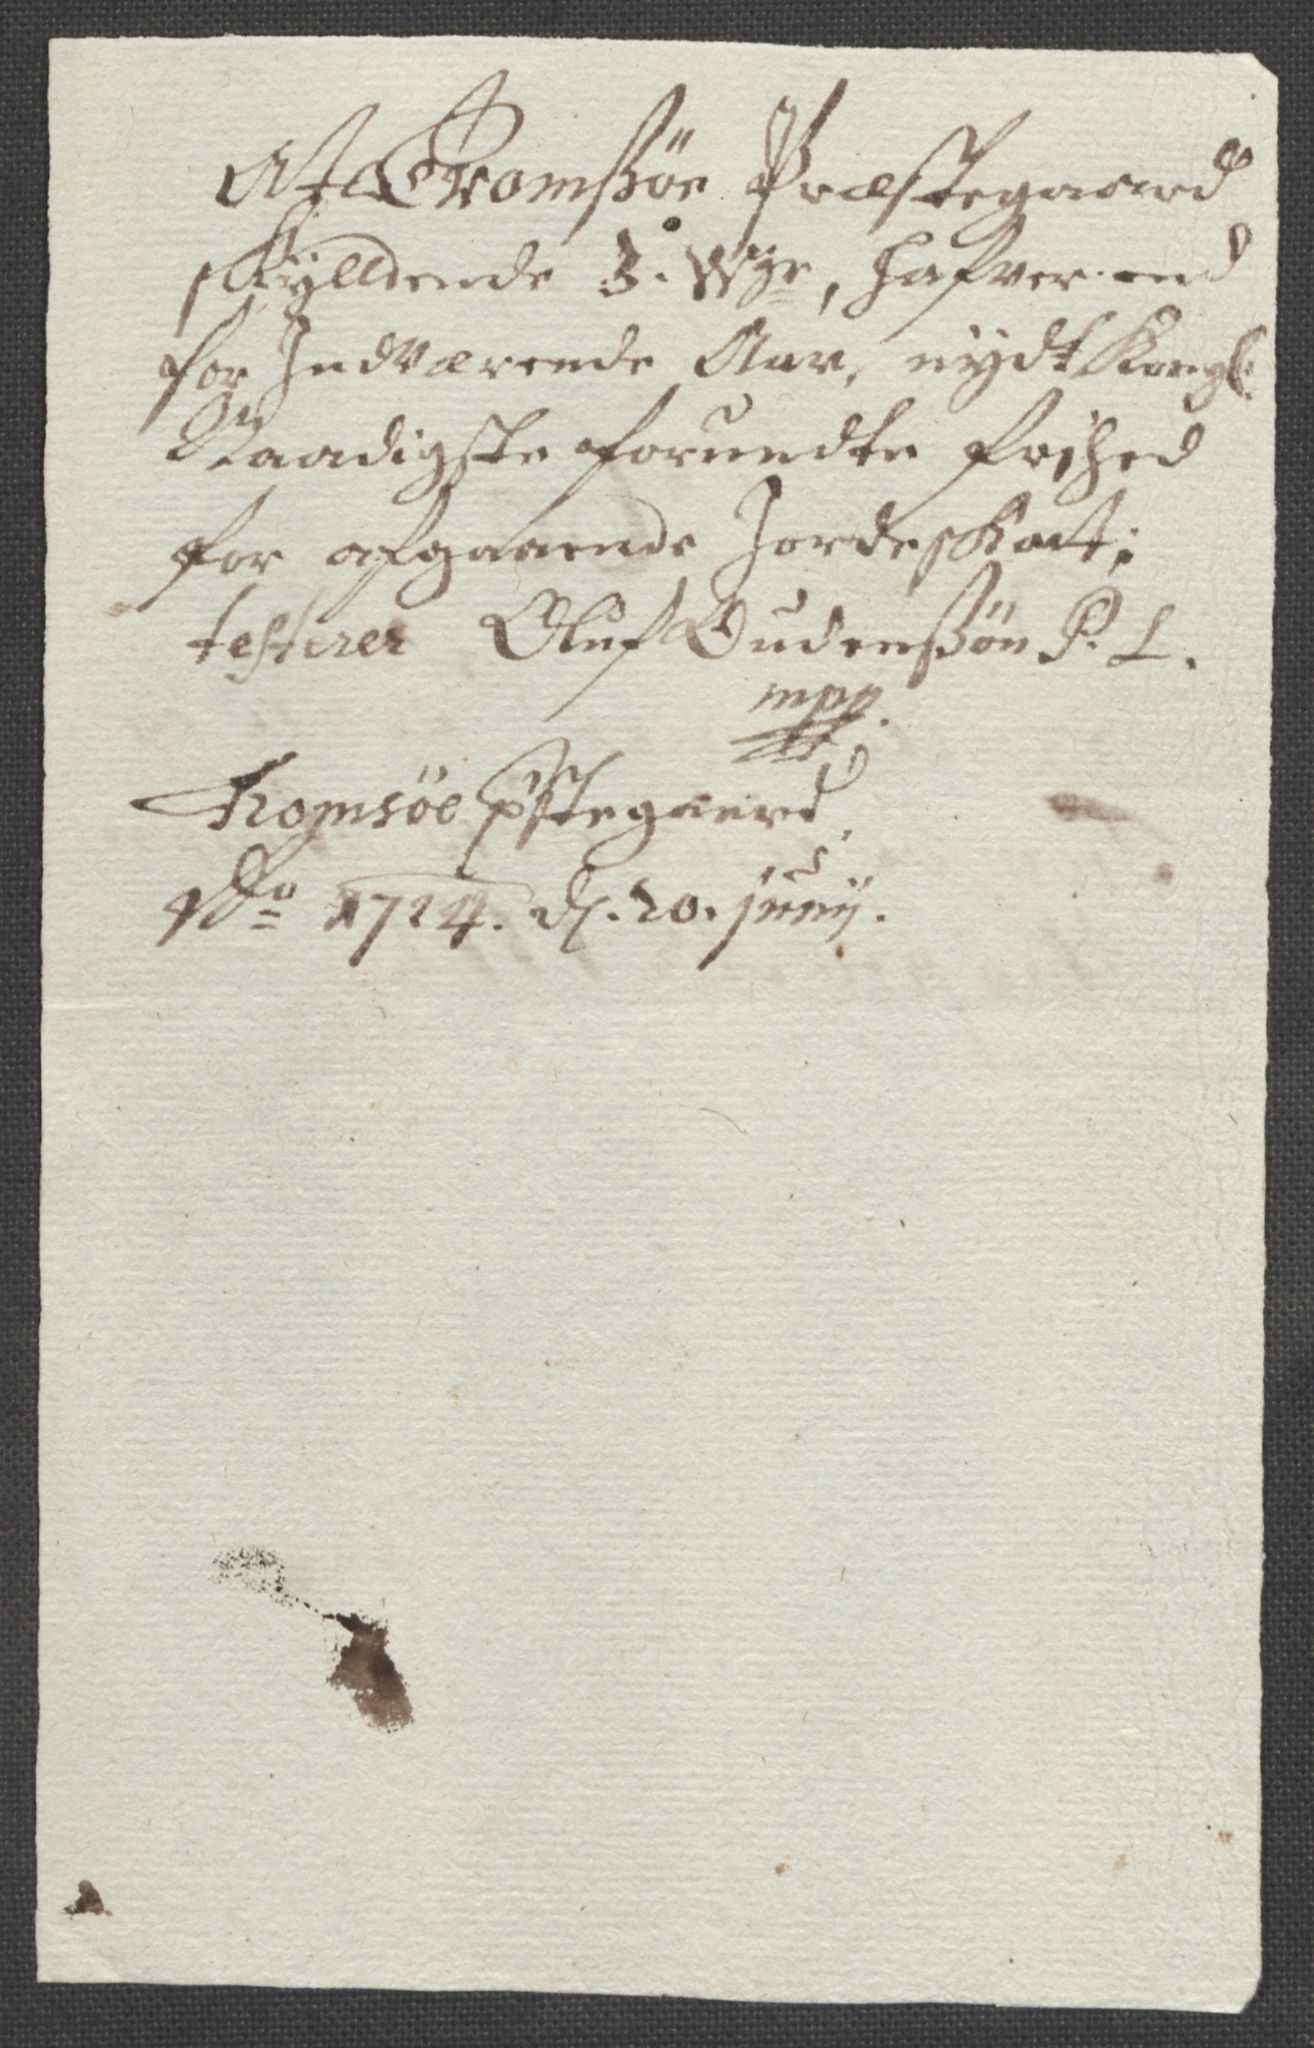 At Tromsöe Præstegaard
skylldende 3. Wger, hafver end
for Indværende Aar, nydt Kongl:
Naadigste forundte frjhed
for afgaaende Jordeskatt;
testerer Oluf Gudenssön P. L.
mpp.
Tromsöe pstegaard
Ao 1714. d. 20. junij.